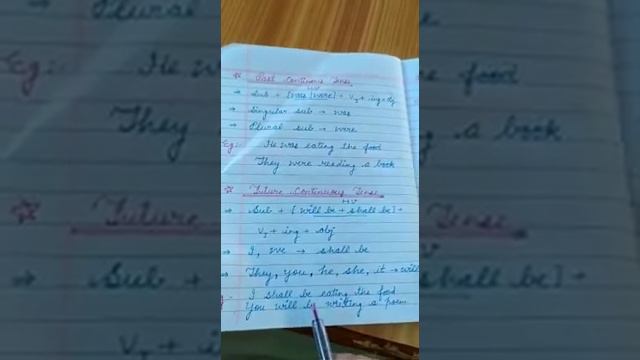 ☆ Past Continuous Tense
HV
⇒ Sub + [was/were] + V₁ + ing + obj
⇒ Singular sub → was
⇒ Plural sub → were
Eg:- He was eating the food
They were reading a book
☆ Future Continuous Tense
HV
⇒ Sub + [will be + shall be] +
V₁ + ing + obj
⇒ I, we → shall be
⇒ They, you, he, she, it → will
I shall be eating the food
You will be writing a poem